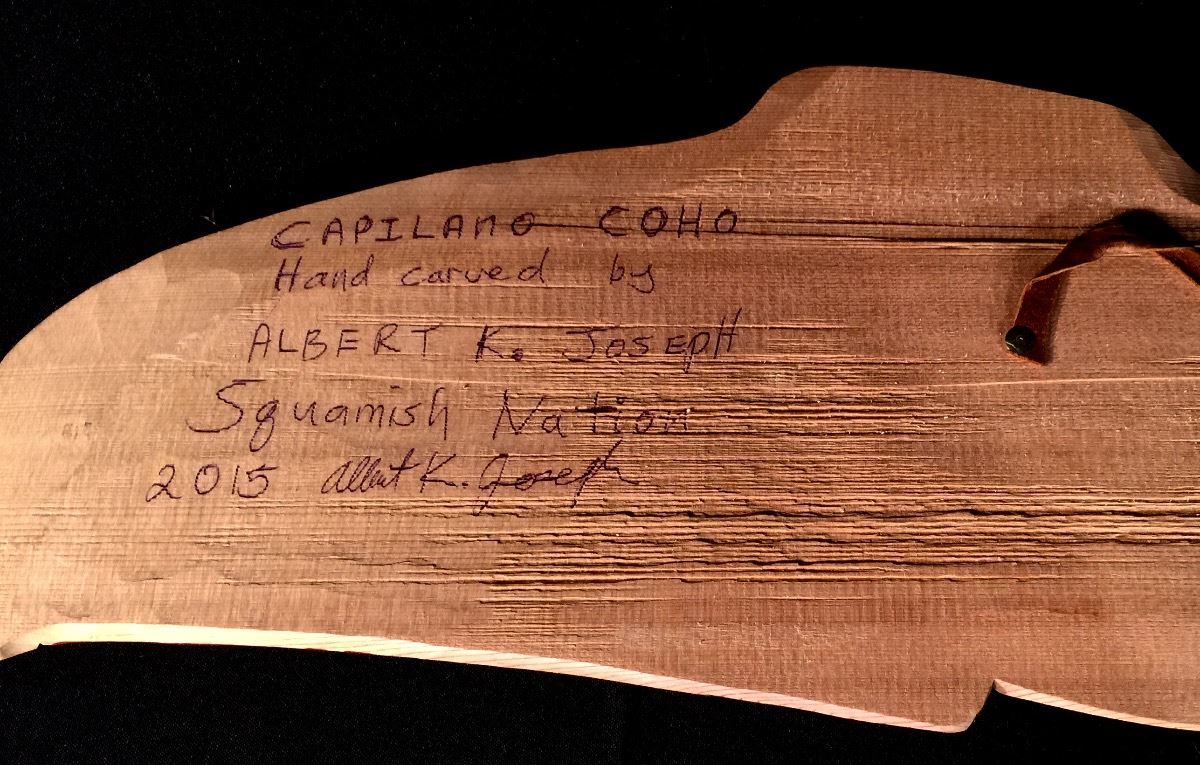 CAPILANO COHO
Hand carved by
ALBERT K. JOSEPH
Squamish Nation
2015 Albert K. Joseph